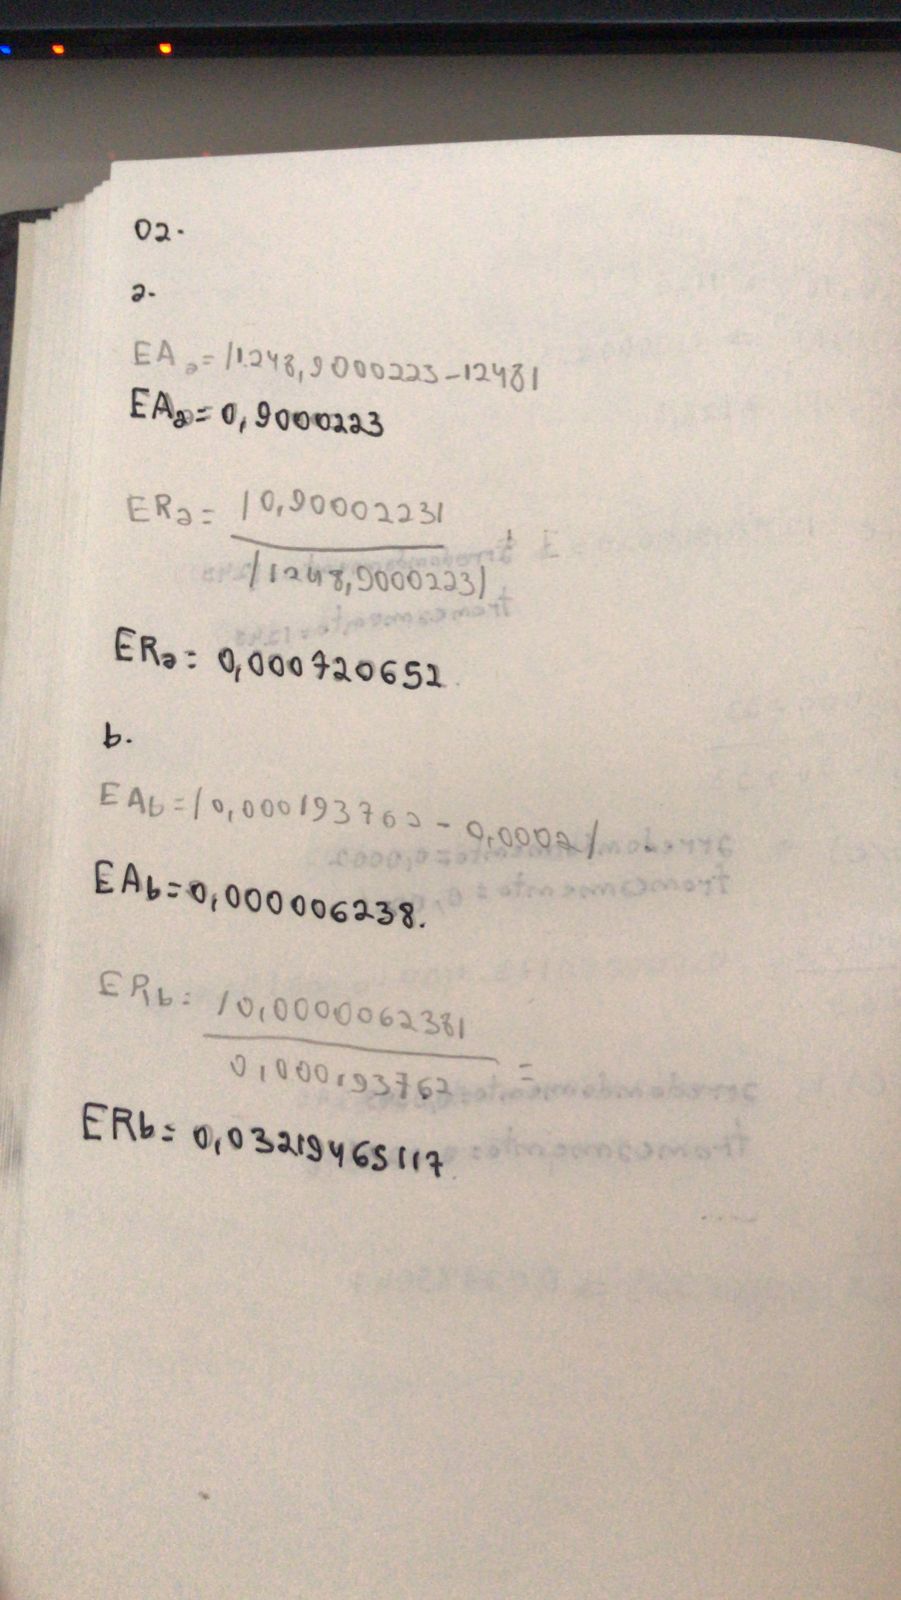 02.
a.
EAa=|1248,9000223-1248|
EAa=0,9000223
ERa= |0,9000223|
|1248,9000223|
ERa= 0,000720652
b.
EAb=|0,000193762 - 0,0002|
EAb=0,000006238.
ERb= |0,000006238| =
0,000193762
ERb= 0,03219465117